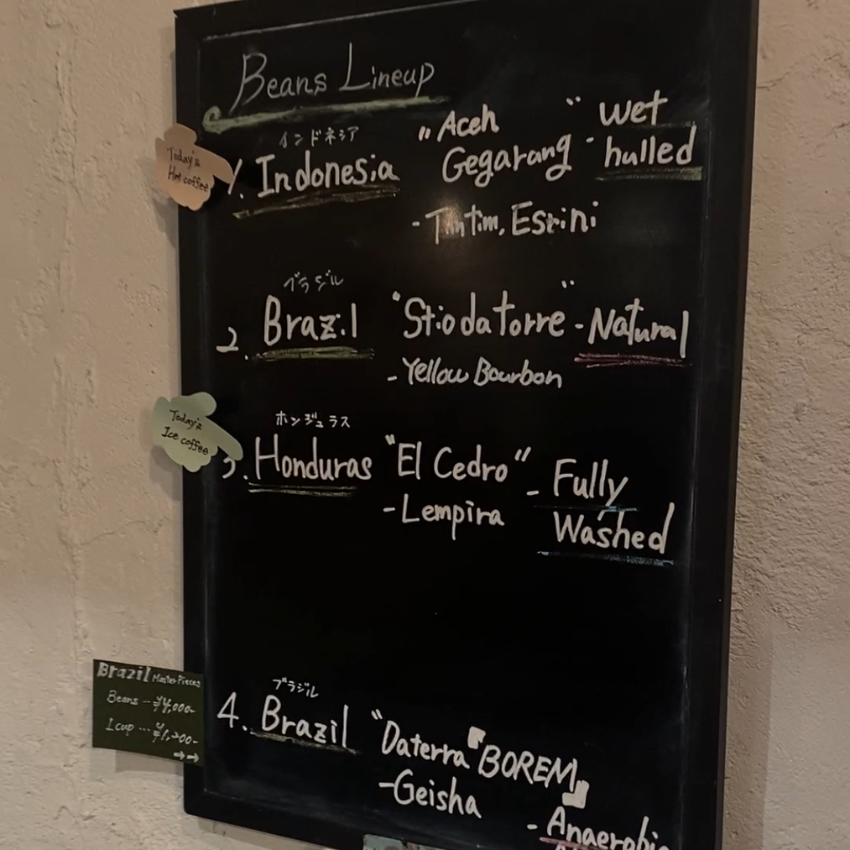 Beans Lineup
Today's
Hot coffee
インドネシア
1. Indonesia "Aceh Gegarang" - Wet hulled
- Timtim, Esrini
ブラジル
2. Brazil "Stiodatorre" - Natural
- Yellow Bourbon
Today's
Ice coffee
ホンジュラス
3. Honduras "El Cedro" - Fully Washed
- Lempira
ブラジル
4. Brazil "Daterra "BOREM"
- Geisha
- Anaerobic
Brazil Master Pieces
Beans … ¥4,000-
1cup … ¥1,200-
→→